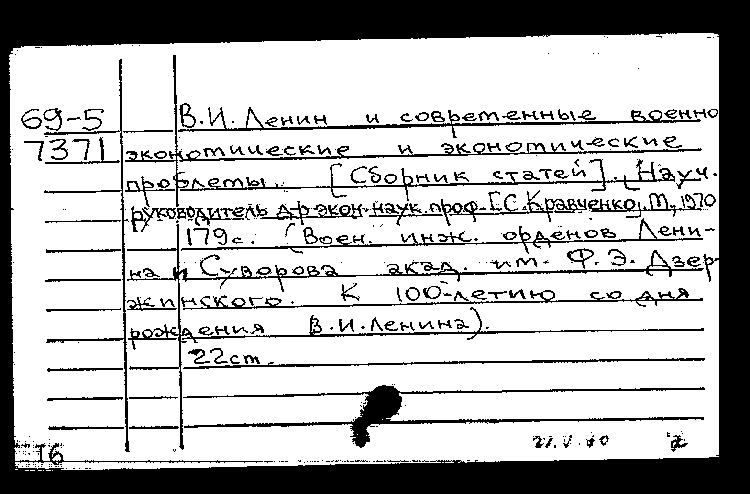 69-5 В.И. Ленин и современные военно
7371 экономические и экономические
проблемы. [Сборник статей]. (Науч.
руководитель д-р экон. наук. проф. Г.С. Кравченко). М., 1970
179с. (Воен. инж. орденов Лени-
на и Суворова акад. им. Ф.Э. Дзер-
жинского. К 100-летию со дня
рождения В.И. Ленина).
22см.
16